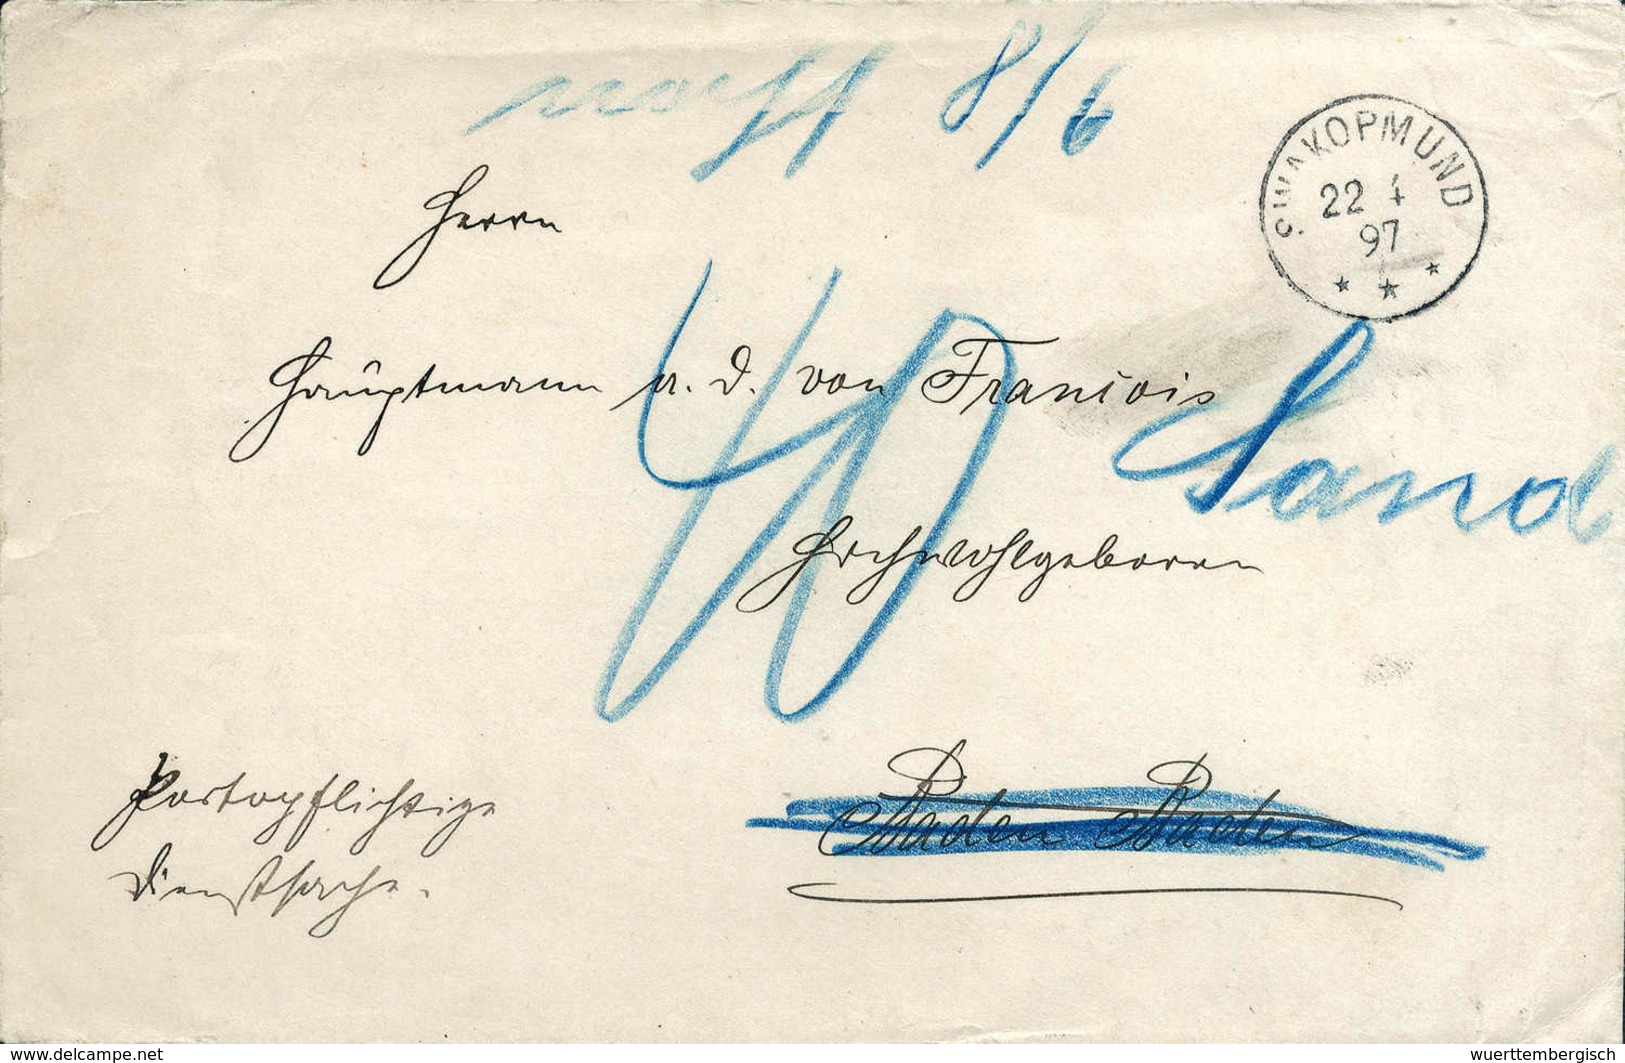 8/6
SWAKOPMUND
22 4
97
Herrn
Hauptmann a. D. von Francois
40
Sand
Hochwohlgeboren
Portopflichtige
Dienstsache.
Baden Baden
www.delcampe.net
wuerttembergisch